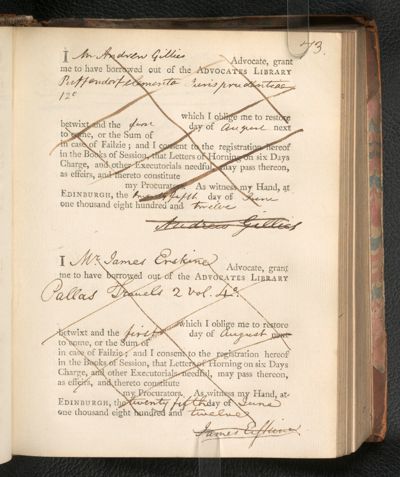 73.
I Mr. Andrew Gillies Advocate, grant
me to have borrowed out of the ADVOCATES LIBRARY
Puffendorf elementa Jurisprudentiae
12º
which I oblige me to restore
betwixt and the day of August next
to come, or the Sum of
in case of Failzie; and I consent to the registration hereof
in the Books of Session, that Letters of Horning on six Days
Charge, and other Executorials needful, may pass thereon,
as effeirs, and hereto constitute
my Procurators. As witness my Hand, at
EDINBURGH, the twenty fifth day of June
one thousand eight hundred and twelve
Andrew Gillies
I Mr. James Erskine Advocate, grant
me to have borrowed out of the ADVOCATES LIBRARY
Pallas Travels 2 vol. 4º.
which I oblige me to restore
betwixt and the first day of August next
to come, or the Sum of
in case of Failzie; and I consent to the registration hereof
in the Books of Session, that Letters of Horning on six Days
Charge, and other Executorials needful, may pass thereon,
as effeirs, and thereto constitute
my Procurators. As witness my Hand, at
EDINBURGH, the twenty fifth day of June
one thousand eight hundred and twelve
James Erskine